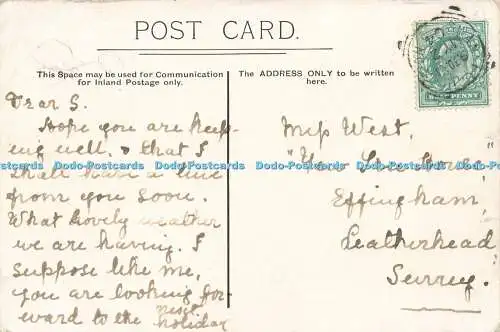 POST CARD.
This Space may be used for Communication
for Inland Postage only.
The ADDRESS ONLY to be written
here.
HALFPENNY
Dear S.
Hope you are keep-
ing well, & that I
shall have a line
from you soon.
What lovely weather
we are having. I
suppose like me,
you are looking for-
ward to the next holiday
Miss West,
"Yew Tree
Effingham,
Leatherhead
Surrey.
Dodo-Postcards Dodo-Postcards Dodo-Postcards Dodo-Postcards